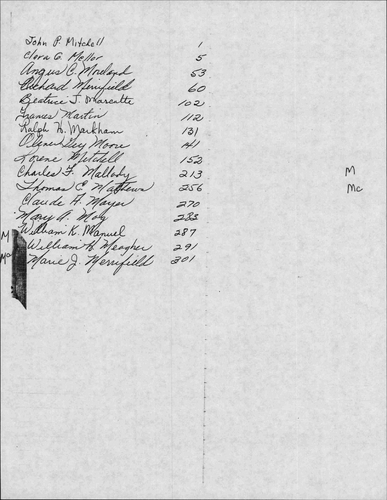 John P. Mitchell 1
Clora G. Mellor 5
Angus C. Moreland 53
Richard Merrifield 60
Beatrice J. Marcotte 102
Frances Martin 112
Ralph H. Markham 131
Guy Moore 141
Lorene Mitchell 152
Charles F. Mallody 213 M
Thomas C. Mathews 256 Mc
Claude H. Mayer 270
Mary A. 283
M William K. Manuel 287
Mc William H. Meagher 291
Marie J. Merrifield 301